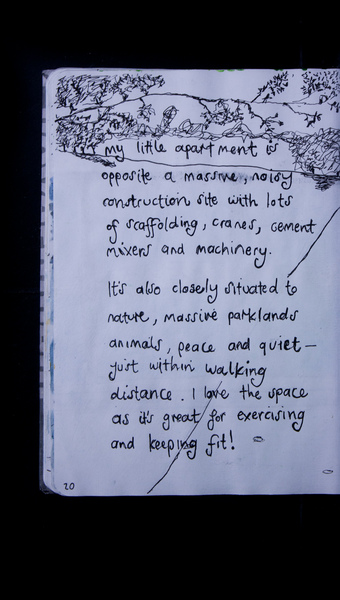 my little apartment is
opposite a massive, noisy
construction site with lots
of scaffolding, cranes, cement
mixers and machinery.
It's also closely situated to
nature, massive parklands
animals, peace and quiet –
just within walking
distance. I love the space
as it's great for exercising
and keeping fit!
20